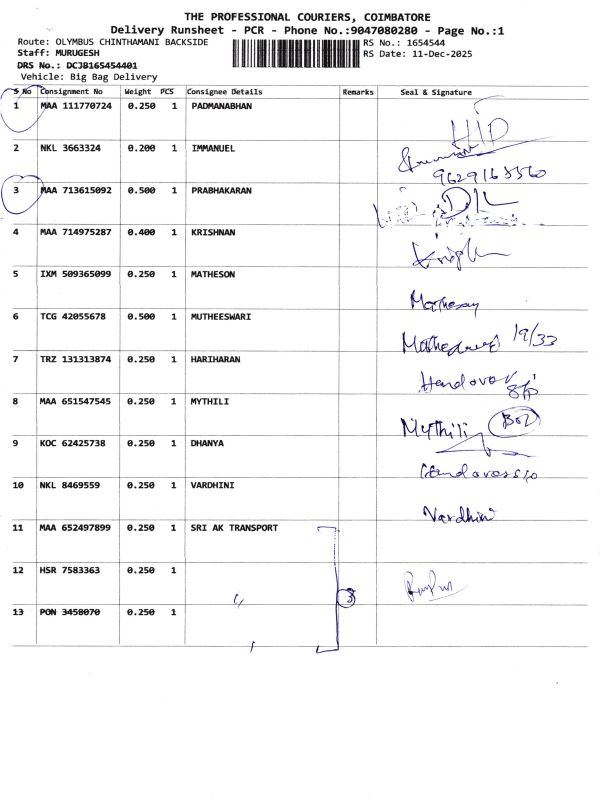 THE PROFESSIONAL COURIERS, COIMBATORE
Delivery Runsheet - PCR - Phone No.:9047080280 - Page No.:1
Route: OLYMBUS CHINTHAMANI BACKSIDE RS No.: 1654544
Staff: MURUGESH RS Date: 11-Dec-2025
DRS No.: DCJB165454401
Vehicle: Big Bag Delivery
S No Consignment No Weight PCS Consignee Details Remarks Seal & Signature
1 MAA 111770724 0.250 1 PADMANABHAN
2 NKL 3663324 0.200 1 IMMANUEL
3 MAA 713615092 0.500 1 PRABHAKARAN
4 MAA 714975287 0.400 1 KRISHNAN
5 IXM 509365099 0.250 1 MATHESON Matheson
6 TCG 42055678 0.500 1 MUTHEESWARI 19/33
7 TRZ 131313874 0.250 1 HARIHARAN Handover
8 MAA 651547545 0.250 1 MYTHILI Mythili
9 KOC 62425738 0.250 1 DHANYA
10 NKL 8469559 0.250 1 VARDHINI Vardhini
11 MAA 652497899 0.250 1 SRI AK TRANSPORT
12 HSR 7583363 0.250 1 3
13 PON 3458070 0.250 1